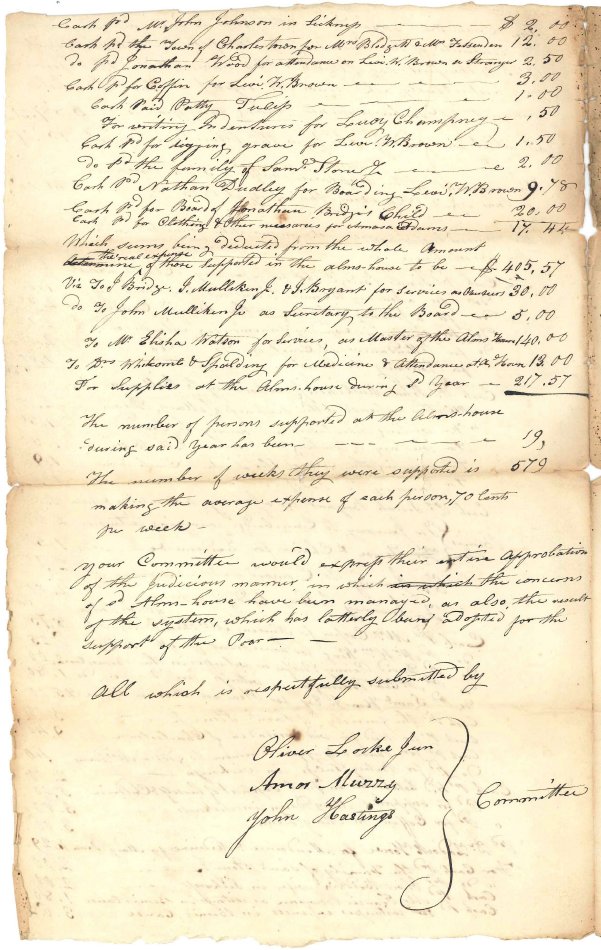 Cash pd Mr John Johnson in Sickness — $ 2.00
Cash pd the Town of Charlestown for Mrs Blodgett & Mrs Fessenden 12.00
do pd Jonathan Wood for attendance on Levi W. Brown a Stranger 2.50
Cash pd for Coffin for Levi W. Brown — 3.00
Cash Paid Patty Tulip — 1.00
For writing Indentures for Lucy Champney — .50
Cash Pd for digging grave for Levi W. Brown — 1.50
do Pd the family of Saml Stone Jr — 2.00
Cash Pd Nathan Dudley for Boarding Levi W. Brown 9.78
Cash Pd for Board of Jonathan Bridge's Child — 20.00
Cash Pd for Clothing & Other for Amasa Adams — 17.44
Which sums being deducted from the whole Amount
the real expense
determine of those supported in the alms-house to be — $ 405,57
Viz To J Bridge. J. Mulliken Jr. & J. Bryant for services as Overseers 30,00
do To John Mulliken Jr as Secretary to the Board — 5,00
To Mr Elisha Watson for Services, as Master of the Alms House 140,00
To Drs Whitcomb & Spalding for Medicine & Attendance at do House 13.00
For Supplies at the Alms-house during sd Year — 217.57
The number of persons supported at the Alms-house
during said Year has been — 19,
The number of weeks they were supported is 579
making the average expense of each person, 70 Cents
pr week —
your Committee would express their entire Approbation
of the judicious manner in which in which the concerns
of sd Alms-house have been managed, as also, the result
of the system, which has latterly been adopted for the
support of the Poor —
All which is respectfully submitted by
Oliver Locke Jun
Amos Muzzy
John Hastings
Committee